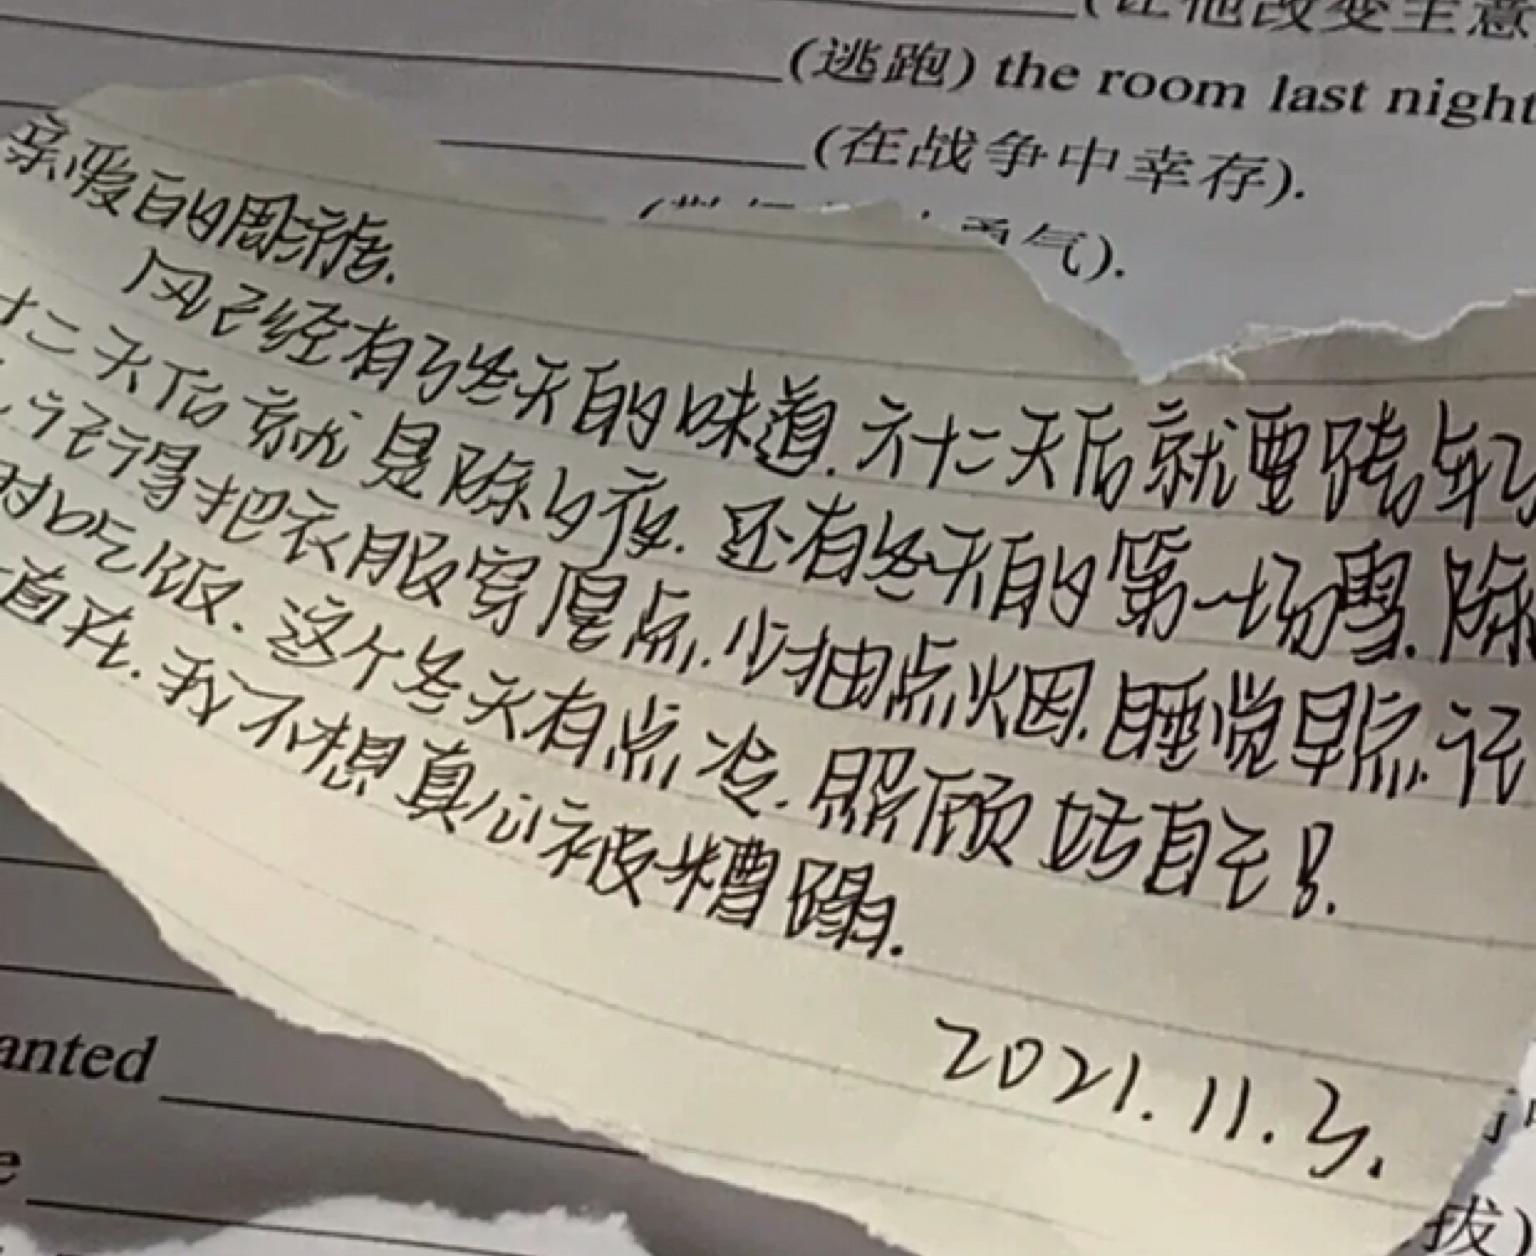 (让他改变主意
(逃跑) the room last night
(在战争中幸存).
勇气).
亲爱的周
风已经有了冬天的味道.六十二天后就要跨年了
十二天后就是除夕夜.还有冬天的第一场雪.除
记得把衣服穿厚点.少抽点烟.睡觉早点.记
时吃饭.这个冬天有点冷.照顾好自己!
直在.我不想真心被糟蹋.
2021.11.3.
anted
e
拔)